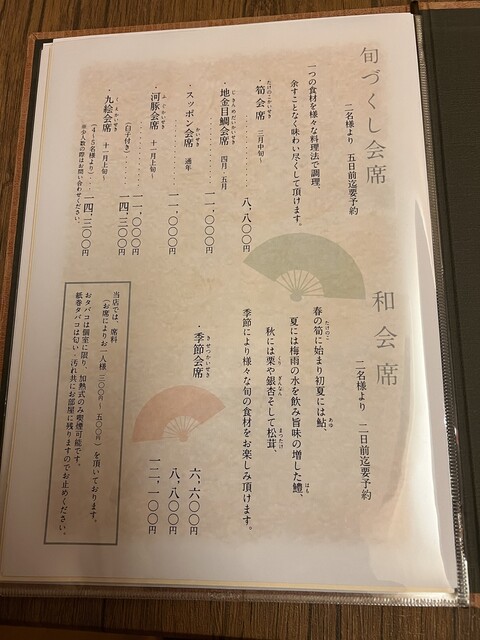 旬づくし会席
二名様より 五日前迄要予約
一つの食材を様々な料理法で調理、
余すことなく味わい尽くして頂けます。
・筍会席 三月中旬~ 八、八〇〇円
たけのこかいせき
・地金目鯛会席 四月、五月 一一、〇〇〇円
じきんめだいかいせき
・スッポン会席 通年 一一、〇〇〇円
かいせき
・河豚会席 十一月上旬~ 一一、〇〇〇円
ふぐかいせき
(白子付き) 一四、三〇〇円
・九絵会席 十一月上旬~
くえかいせき
(4~5名様より) 一四、三〇〇円
※少人数の際はお問い合わせください。
和会席
二名様より 二日前迄要予約
春の筍に始まり初夏には鮎、
たけのこ あゆ
夏には梅雨の水を飲み旨味の増した鱧、
はも
秋には栗や銀杏そして松茸、
ぎんなん まつたけ
季節により様々な旬の食材をお楽しみ頂けます。
・季節会席
きせつかいせき
六、六〇〇円
八、八〇〇円
一二、一〇〇円
当店では、席料
(お席によりお一人様、三〇〇円~五〇〇円)を頂いております。
おタバコは個室に限り、加熱式のみ喫煙可能です。
紙巻タバコは匂い、汚れ共にお部屋に残りますのでお止めください。